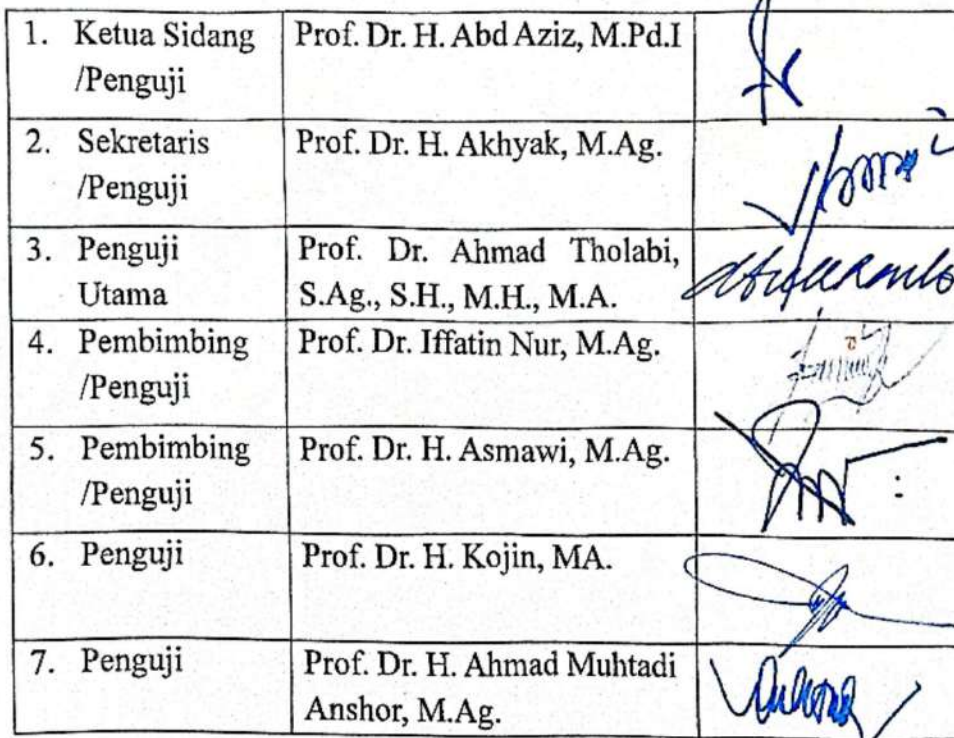 1. Ketua Sidang /Penguji Prof. Dr. H. Abd Aziz, M.Pd.I
2. Sekretaris /Penguji Prof. Dr. H. Akhyak, M.Ag.
3. Penguji Utama Prof. Dr. Ahmad Tholabi, S.Ag., S.H., M.H., M.A.
4. Pembimbing /Penguji Prof. Dr. Iffatin Nur, M.Ag.
5. Pembimbing /Penguji Prof. Dr. H. Asmawi, M.Ag.
6. Penguji Prof. Dr. H. Kojin, MA.
7. Penguji Prof. Dr. H. Ahmad Muhtadi Anshor, M.Ag.